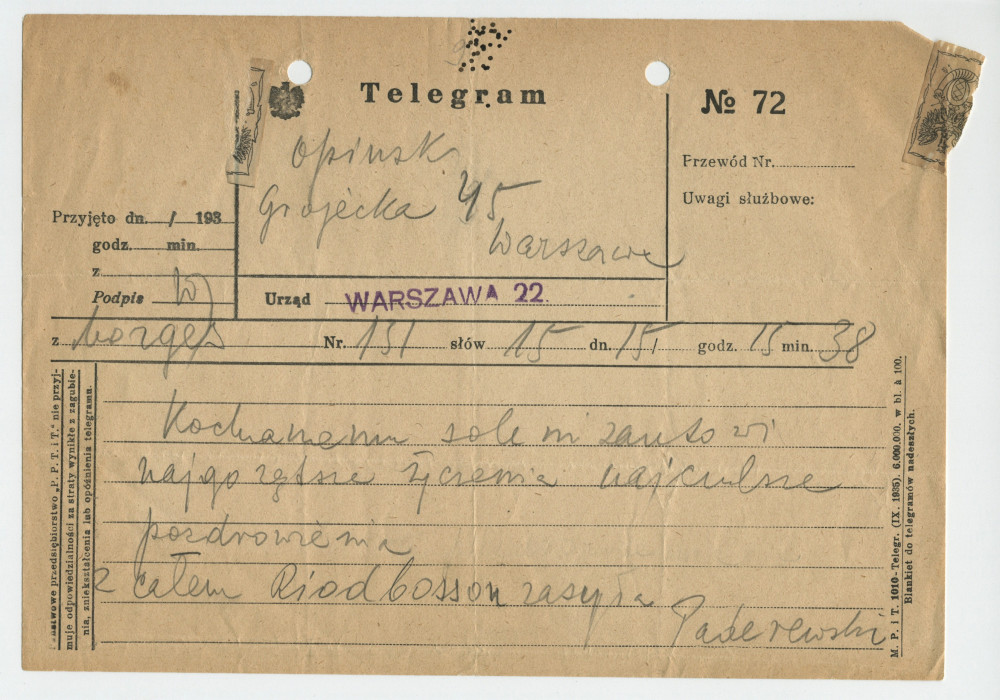 Telegram
№ 72
Opinsk
Przewód Nr.
Grojecka 45
Uwagi służbowe:
Warszawa
Przyjęto dn. / 193
godz. min.
z
Podpis W
Urząd WARSZAWA 22.
z Morges Nr. 151 słów 15 dn. 15/ godz. 15 min. 38
Kochanemu solenizantowi
najgorętsze życzenia najczulsze
pozdrowienia
z całem Riodbosson zasyła
Paderewski
Państwowe przedsiębiorstwo „P. P. T. i T." nie przyj-
muje odpowiedzialności za straty wynikłe z zagubie-
nia, zniekształcenia lub opóźnienia telegramu.
M. P. i T. 1010-Telegr. (IX. 1935). 6.000.000. w bl. à 100.
Blankiet do telegramów nadeszłych.